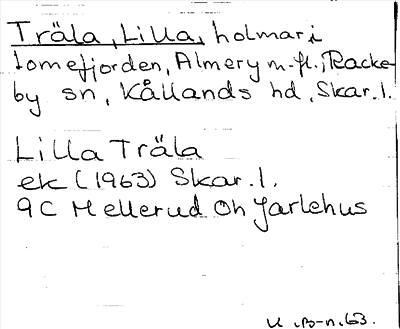 Träla, Lilla, holmar i
Tomefjorden, Almery m.fl.; Racke-
by sn, Kållands hd, Skar.l.
Lilla Träla
ek (1963) Skar.l.
9C Mellerud Oh Jarlehus
u.